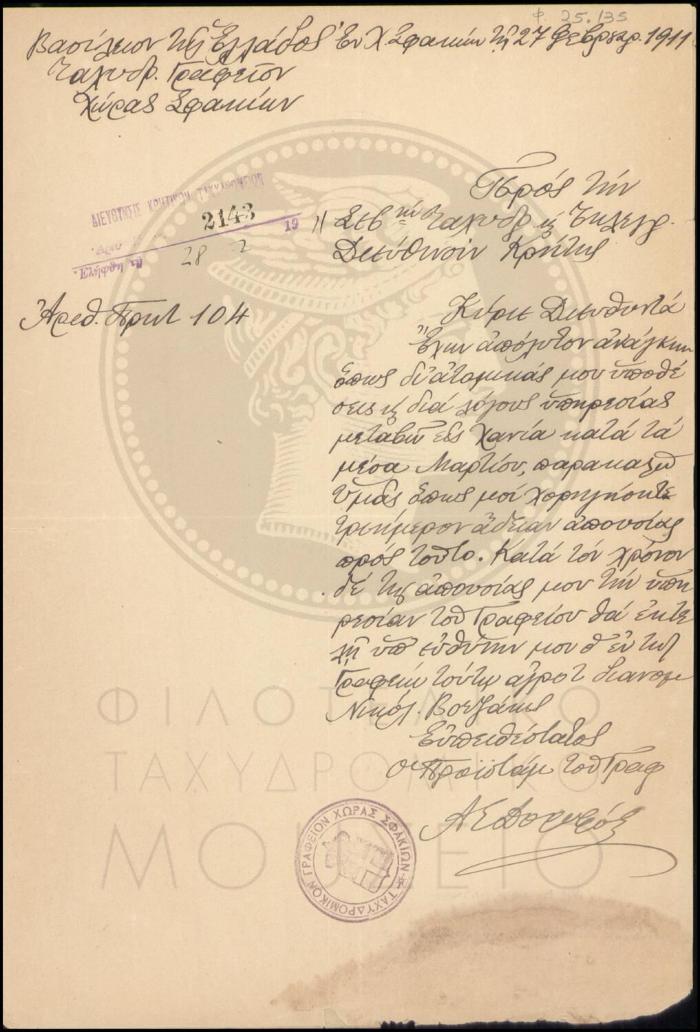 Φ 25.135
Βασίλειον τῆς Ἑλλάδος Ἐν Χ. Σφακίων τῇ 27 Φεβρουαρ. 1911
Ταχυδρ. Γραφεῖον
Χώρας Σφακίων
Πρὸς τὴν
ΔΙΕΥΘΥΝΣΙΣ ΚΡΗΤΙΚΩΝ ΤΑΧΥΔΡΟΜΕΙΩΝ
2143
19 11
28 2
Σεβ τὴν Ταχυδρ. κ Τηλεγρ.
Διεύθυνσιν Κρήτης
Ἀριθ. Πρωτ 104
Κύριε Διευθυντὰ
Ἔχων ἀπόλυτον ἀνάγκην
ὅπως δι' ἀτομικάς μου ὑποθέ
σεις κ διὰ λόγους ὑπηρεσίας
μεταβῶ εἰς Χανιὰ κατὰ τὰ
μέσα Μαρτίου, παρακαλῶ
Ὑμᾶς ὅπως μοὶ χορηγήσητε
τριήμερον ἄδειαν ἀπουσίας
πρὸς τοῦτο. Κατὰ τὸν χρόνον
δὲ τῆς ἀπουσίας μου τὴν ὑπη
ρεσίαν τοῦ Γραφείου θὰ ἐκτε
λῇ ὑπ' εὐθύνην μου ὁ ἐν τῷ
Γραφείῳ τούτῳ ἀγροτ διανομ
Νικόλ.
Εὐπειθέστατος
Ὁ Προϊστάμ τοῦ Γραφ
ΤΑΧΥΔΡΟΜΙΚΟΝ ΓΡΑΦΕΙΟΝ ΧΩΡΑΣ ΣΦΑΚΙΩΝ
ΦΙΛΟΤΕΛΙΚΟ
ΤΑΧΥΔΡΟΜΙΚΟ
ΜΟΥΣΕΙΟ